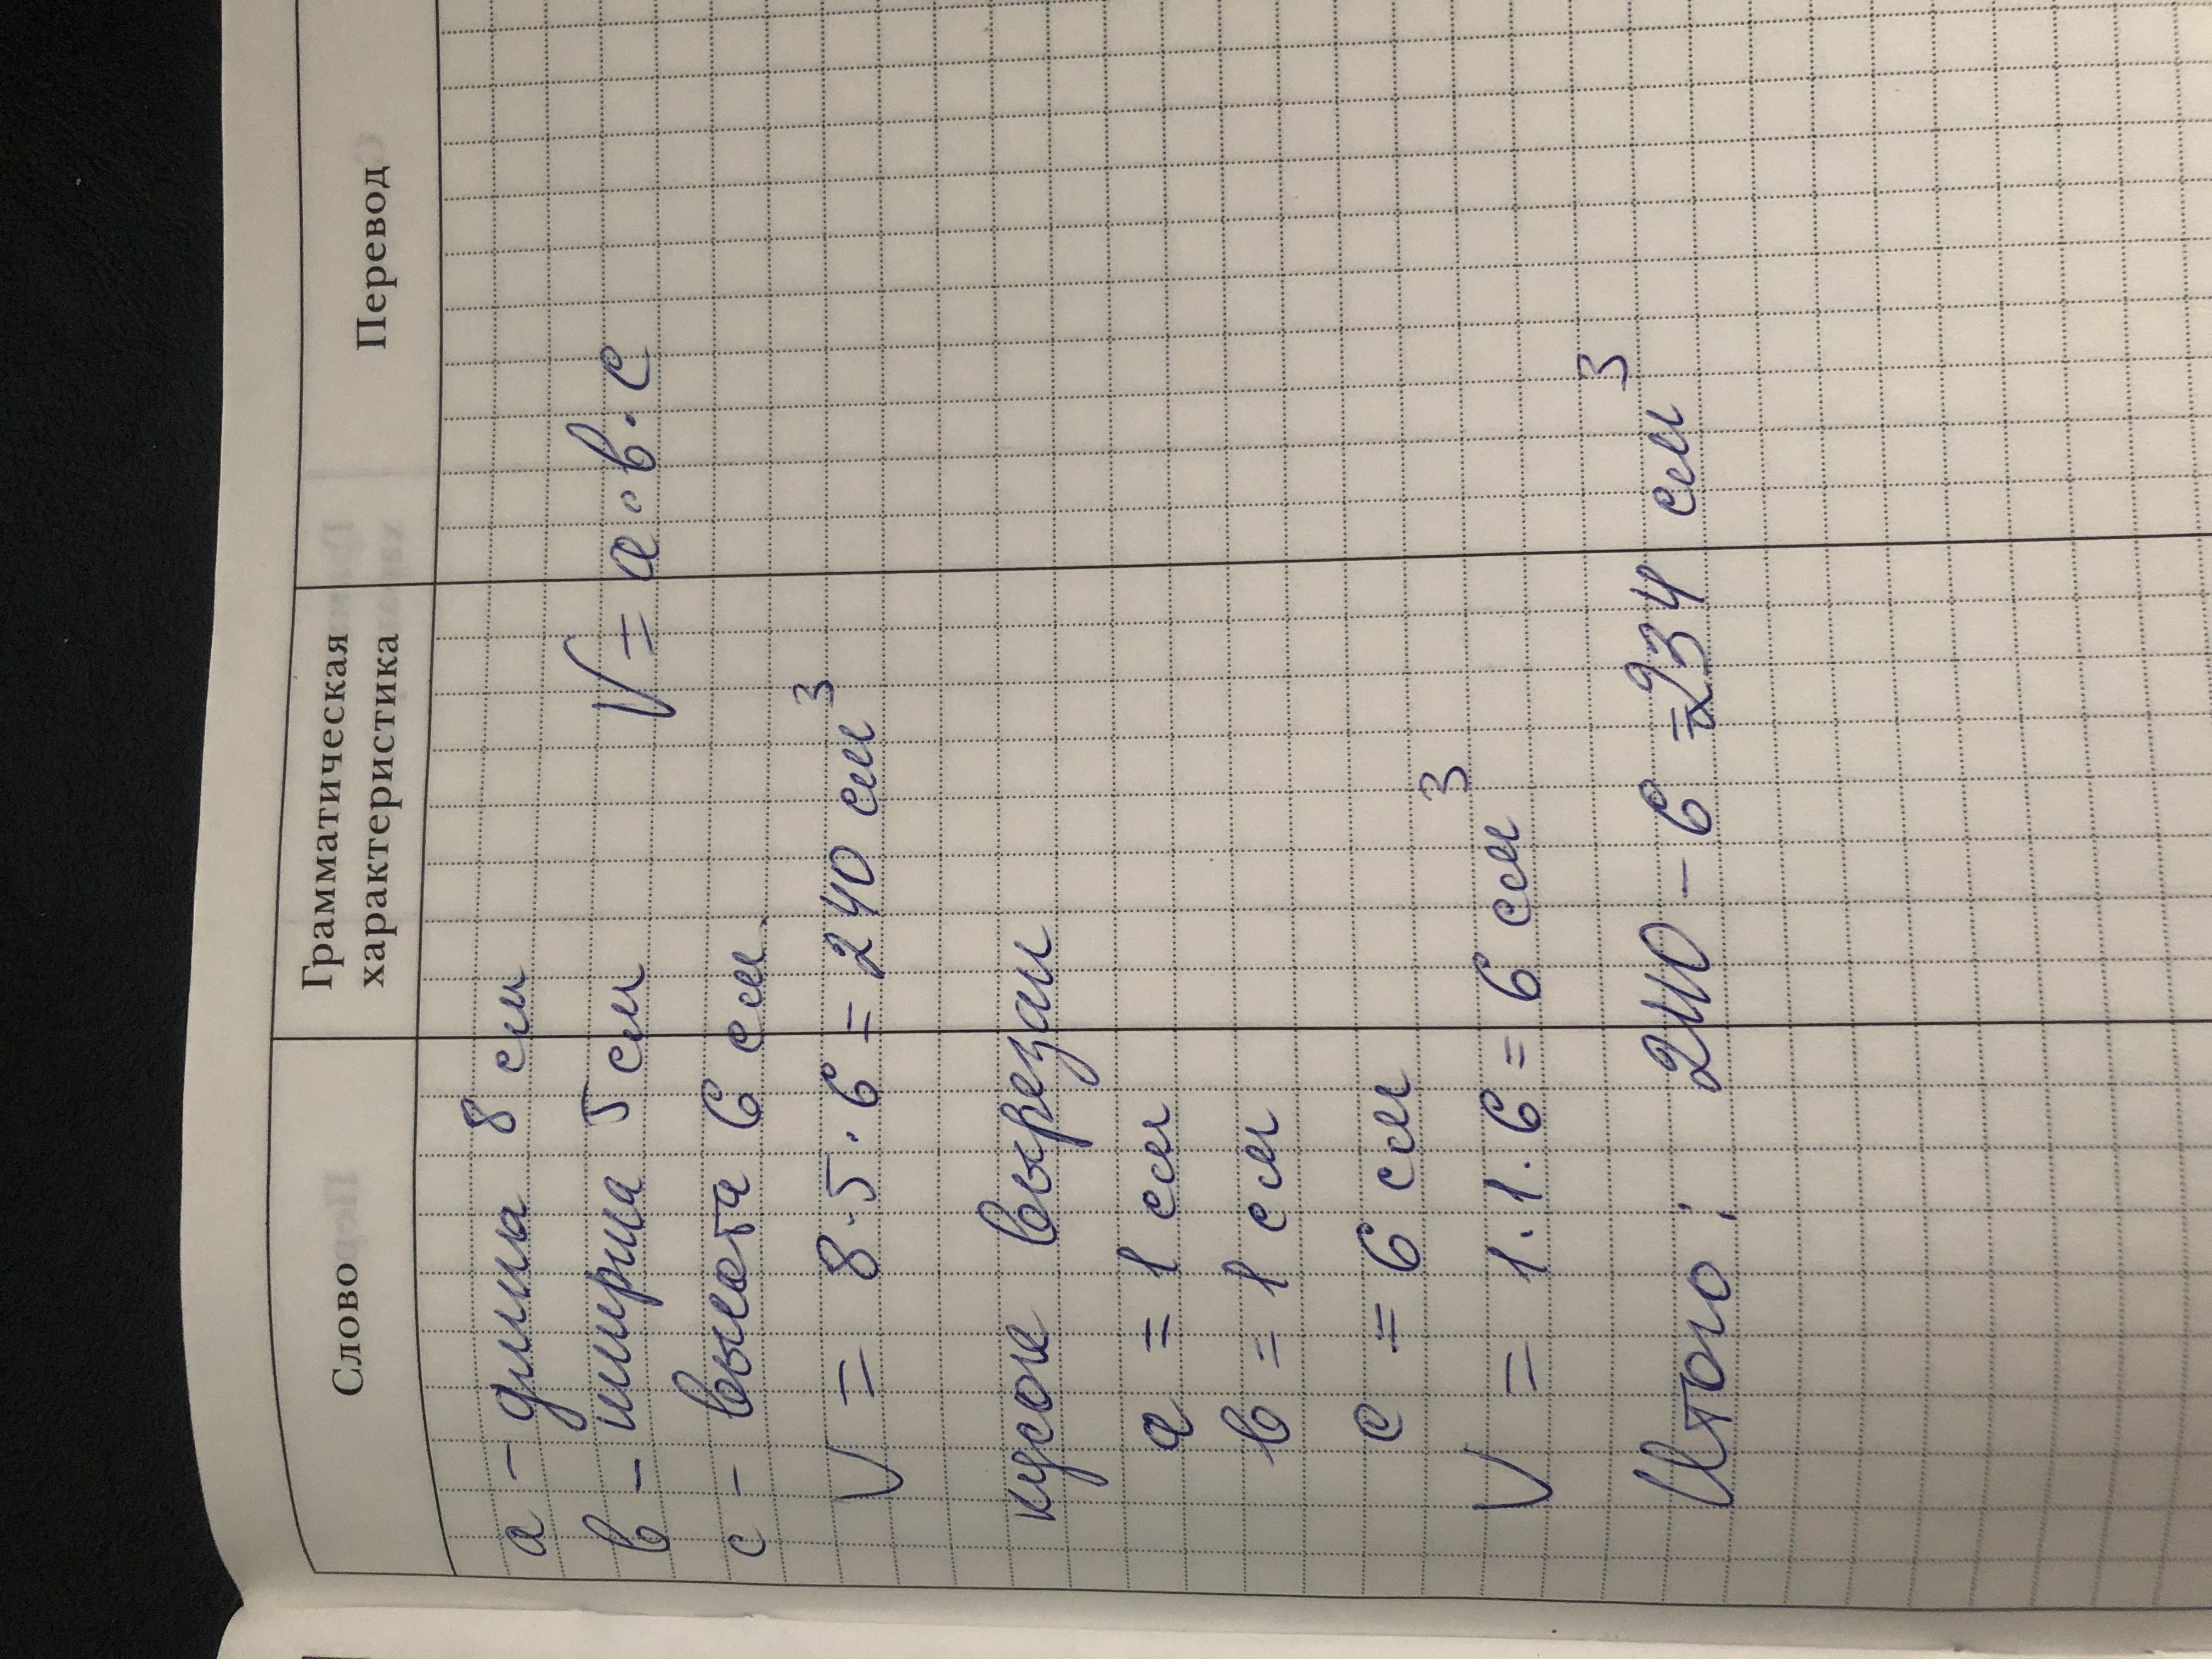 Слово Грамматическая характеристика Перевод
а - длина 8 см
в - ширина 5 см V = а · в · с
с - высота 6 см.
V = 8 · 5 · 6 = 240 см³
кусок вырезали
а = 1 см
в = 1 см
с = 6 см
V = 1 · 1 · 6 = 6 см³
Итого: 240 - 6 = 234 см³